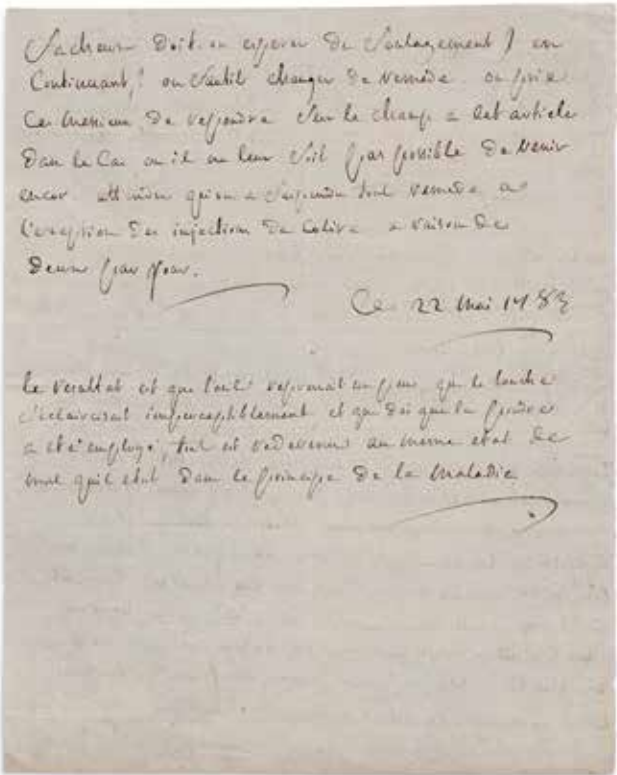 doit on esperer du soulagement en
Continuant, ou faut il changer de remede. on prie
Ces messieurs de repondre sur le champ a cet article
dans le Cas ou il ne leur soit pas possible de venir
encor. on a suspendu tout remede a
l'exception des injections de a raison de
deux par jour.
Ce 22 mai 1783
le resultat est que l'oeil reprenait un peu, que la touche
s'eclaircissait imperceptiblement, et que des que la poudre
a eté employé, tout est redevenu au meme etat de
mal quil etait dans le principe de la maladie